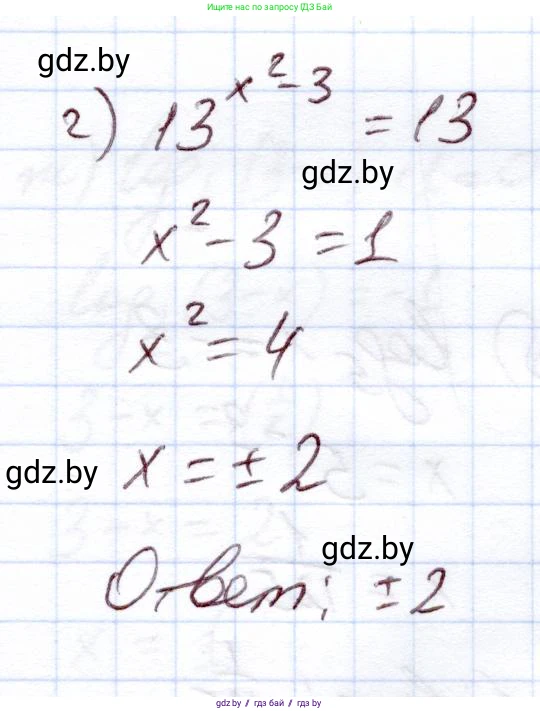 Ищите нас по запросу ГДЗ Бай
gdz.by
г) 13^{x^2-3} = 13
gdz.by
x^2 - 3 = 1
x^2 = 4
gdz.by
x = ± 2
gdz.by
Ответ: ± 2
gdz.by / гдз бай / gdz.by